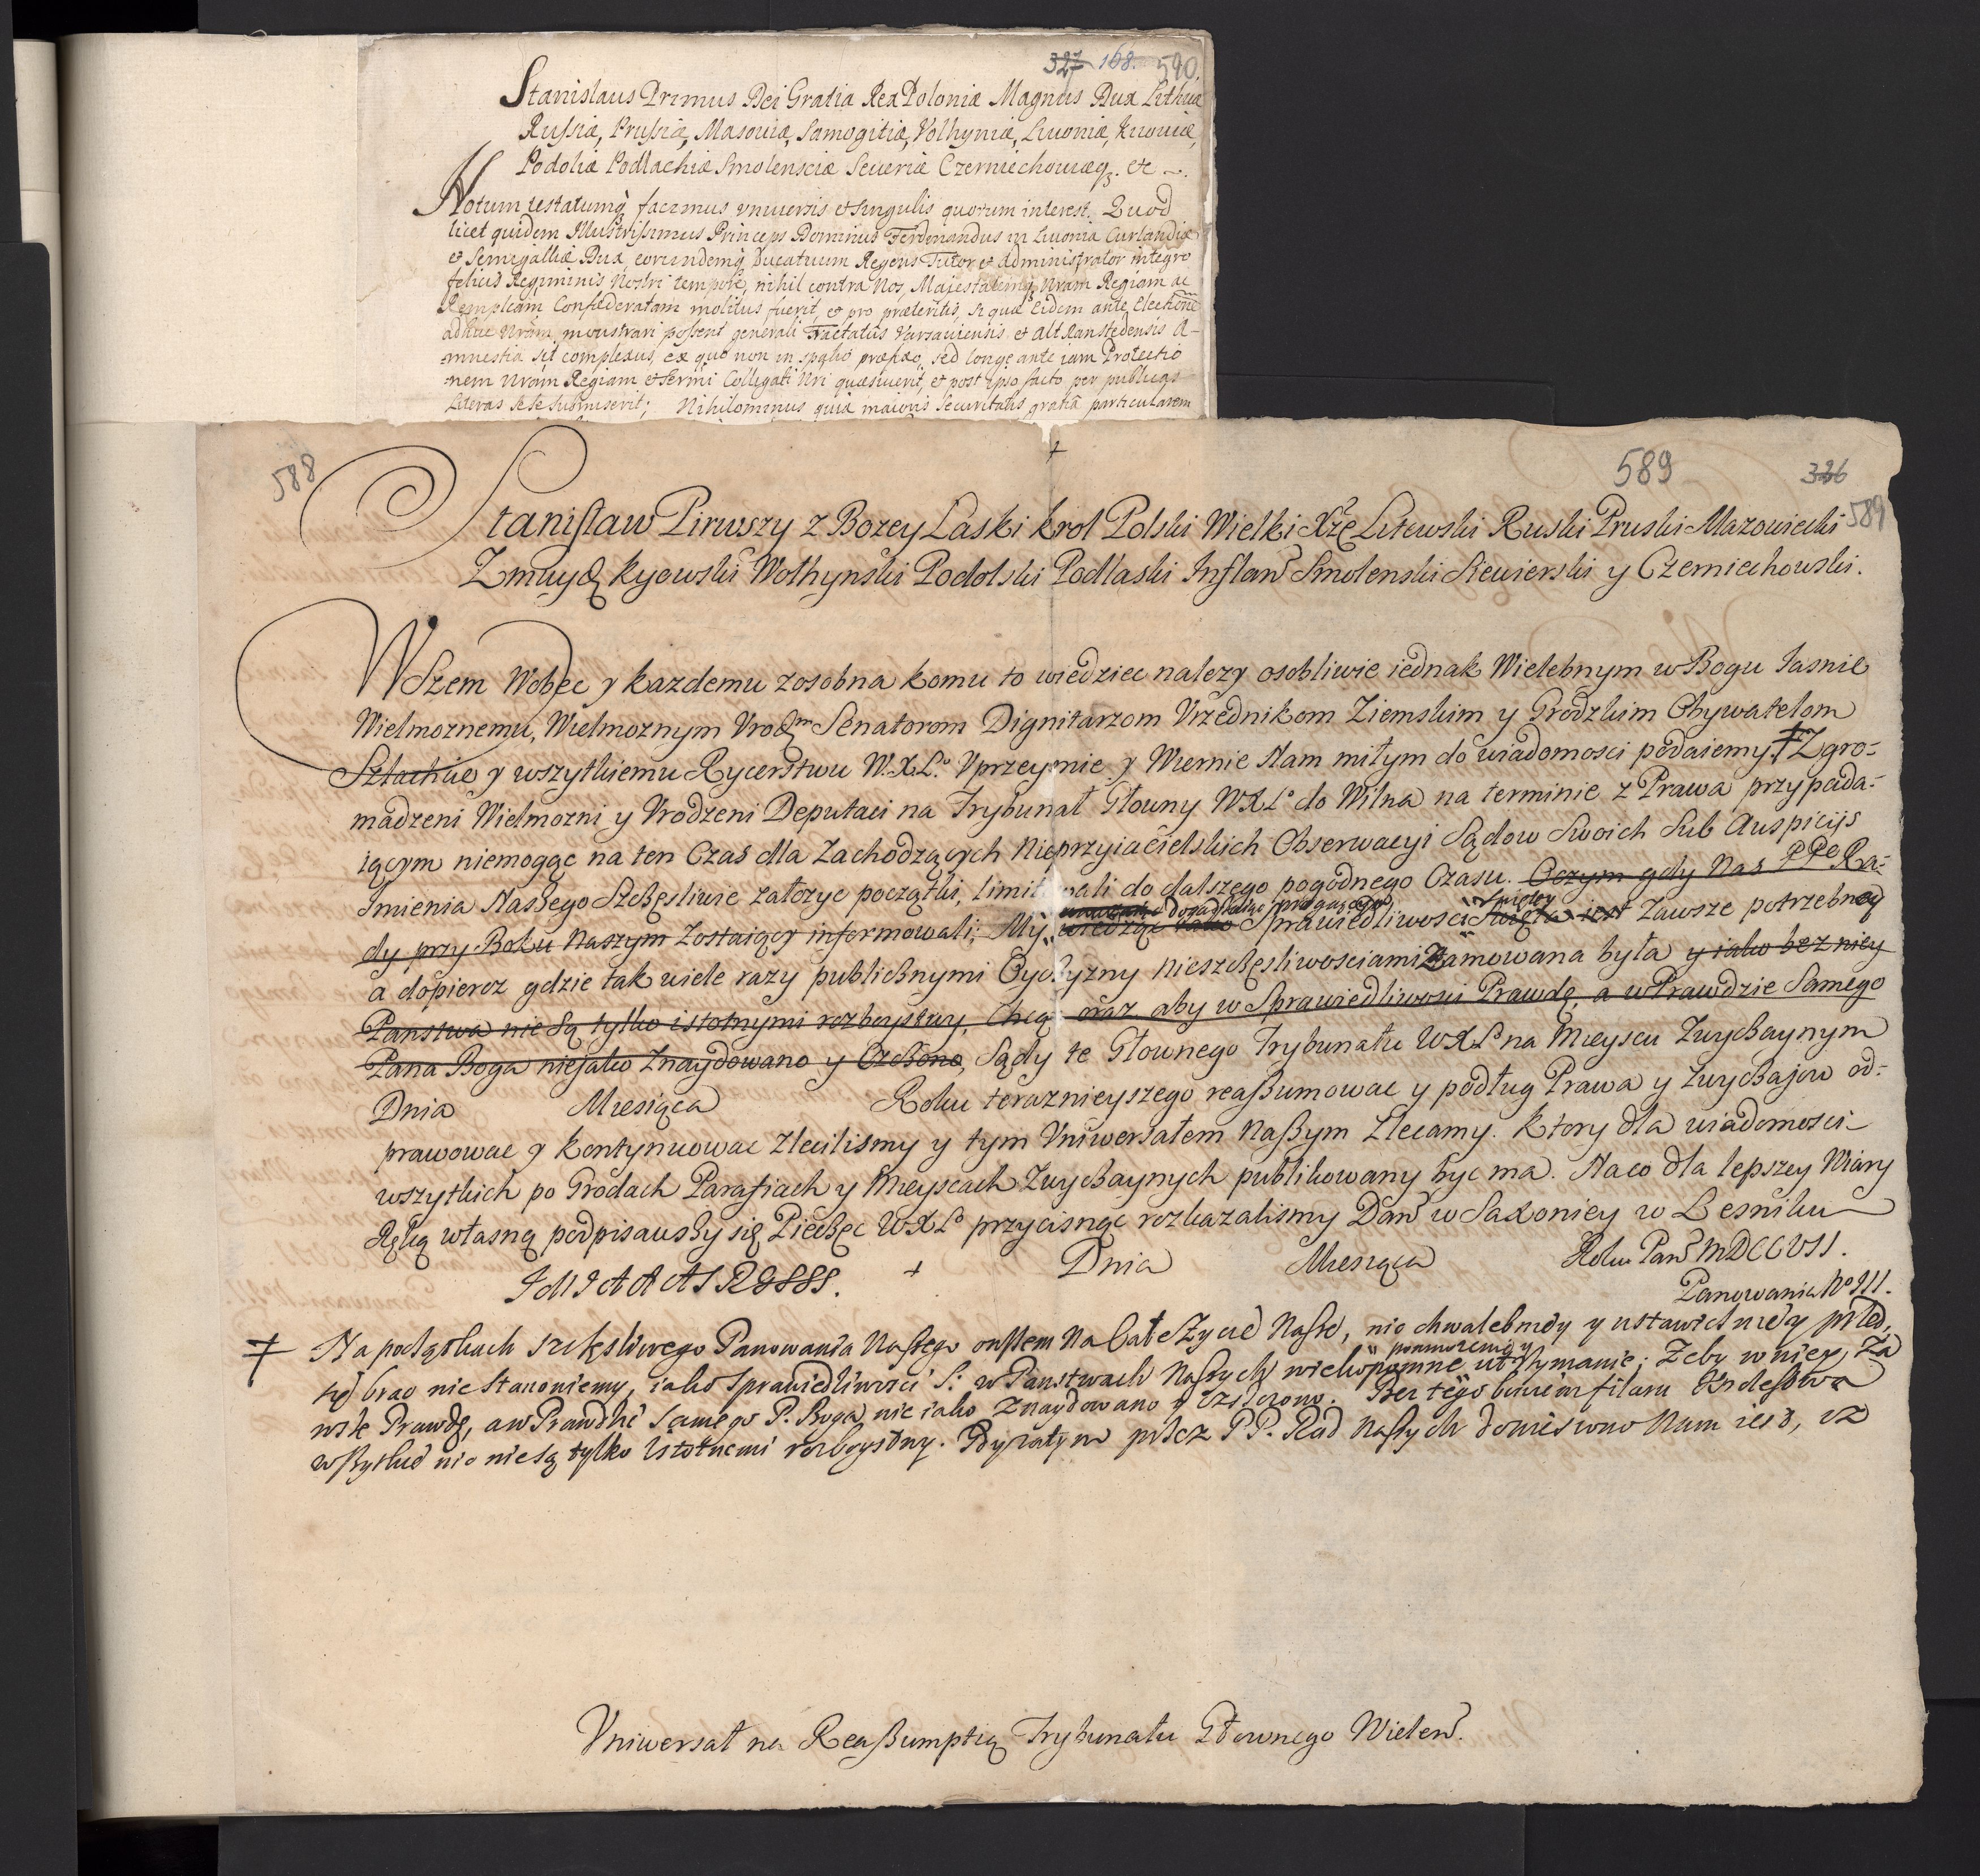 327 168. 590.
Stanislaus Primus Dei Gratia Rex Poloniæ Magnus Dux Lithuæ
Russiæ, Prussiæ, Masoviæ, Samogitiæ, Volhyniæ, Livoniæ, Kiioviæ,
Podoliæ Podlachiæ Smolensciæ Severiæ Czerniechoviæq3. etc
Notum testatumq3 facimus universis et singulis quorum interest. Quod
licet quidem Illustrissimus Princeps Dominus Ferdinandus in Livonia Curlandiæ
et Semigalliæ Dux, eorundemq3 Ducatuum Regens Tutor et Administrator integro
felicis Regiminis Nostri tempore, nihil contra Nos, Maiestatemq3 Nram Regiam ac
Remplcam Confæderatam molitus fuerit, et pro præteritis, si quæ Eidem ante Electione
adhuc Nram monstrari possent generali Tractatus Varsaviensis et Alt Ranstedensis A-
mnestia sit complexus, ex quo non in spatio præfato, sed longe ante iam Protectio
nem Nram Regiam et Sermi Collegati Nri quæsiverit, et post ipso facto per publicas
Literas sese submiserit; Nihilominus quia maioris Securitatis gratia particularem
588
589
326
589
Stanisław Pirwszy z Bozey Łaski Krol Polski Wielki Xże Litewski Ruski Pruski Mazowiecki
Zmuydz Kyowski Wołhynski Podolski Podlaski Inflan Smolenski Siewierski y Czerniechowski.
WSzem Wobec y kazdemu zosobna komu to wiedziec nalezy osobliwie iednak Wielebnym w Bogu Jasnie
Wielmoznemu, Wielmoznym Vrodzm Senatorom Dignitarzom Vrzednikom Ziemskim y Grodzkim Obywatelom
Szlachcie y wszytkiemu Rycerstwu W.X.Lo. Vprzeymie y Wiernie Nam miłym do wiadomosci podaiemy ‡ Zgro-
madzeni Wielmozni y Vrodzeni Deputaci na Trybunał Głowny WXLo do Wilna na terminie z Prawa przypada-
iącym niemogąc na ten Czas dla Zachodzących Nieprzyiacielskich Obserwacyi Sądow Swoich Sub Auspicijs
Imienia Naszego Szczęsliwie załozyc początki, limitowali do dalszego pogodnego Czasu. Oczym gdy Nas PPe Ra-
dy przy Boku Naszym Zostaiący informowali; My wiedząc iako Sprawiedliwosci Swięta iest Zawsze potrzebney
Swiętey
a dopieroz gdzie tak wiele razy publicznymi Oyczyzny nieszczęsliwosciami Zamowana była y iako bez niey
Panstwa nie są tylko istotnymi rozboystwy, Chcąc oraz aby w Sprawiedliwosci Prawdę, a w Prawdzie Samego
Pana Boga niejako Znaydowano y Czczono, Sądy te Głownego Trybunału WXLo na Mieyscu Zwyczaynym
Dnia Miesiąca Roku terazniejszego reassumowac y podług Prawa y Zwyczajow od-
prawowac y kontynuowac Zlecilismy y tym Vniwersałem Naszym Zlecamy. Ktory dla wiadomosci
wszytkich po Grodach Parafiach y Mieyscach Zwyczaynych publikowany byc ma. Naco dla lepszey Wiary
Ręką własną podpisawszy się Pieczęc WXLo przycisnąc rozkazalismy Dan w Saxoniey w Lesniku
Dnia Miesiąca Roku Pan MDCCVII.
Panowania No III.
‡ Na początkach szczęsliwego Panowania Naszego owszem Na Całe Zycie Nasze, nic chwalebnieey y ustawicznieey przed,
się brac nie stanowiemy, iako Sprawiedliwosci S: w Panstwach Naszych wiekopomne utrzymanie; Zeby w niey, Za
pomnozenie y
wsze Prawdę, a w Prawdzie samego P. Boga, nie iako Znaydowano y czczono. Bez tego bowiem filaru Krolestwa
wszytkie nic nie są tylko istotnemi rozboystwy. Gdy zatym przez PP. Rad Naszych doniesiono Nam iest, iz
Vniwersał na Reassumptią Trybunału Głownego Wilen.